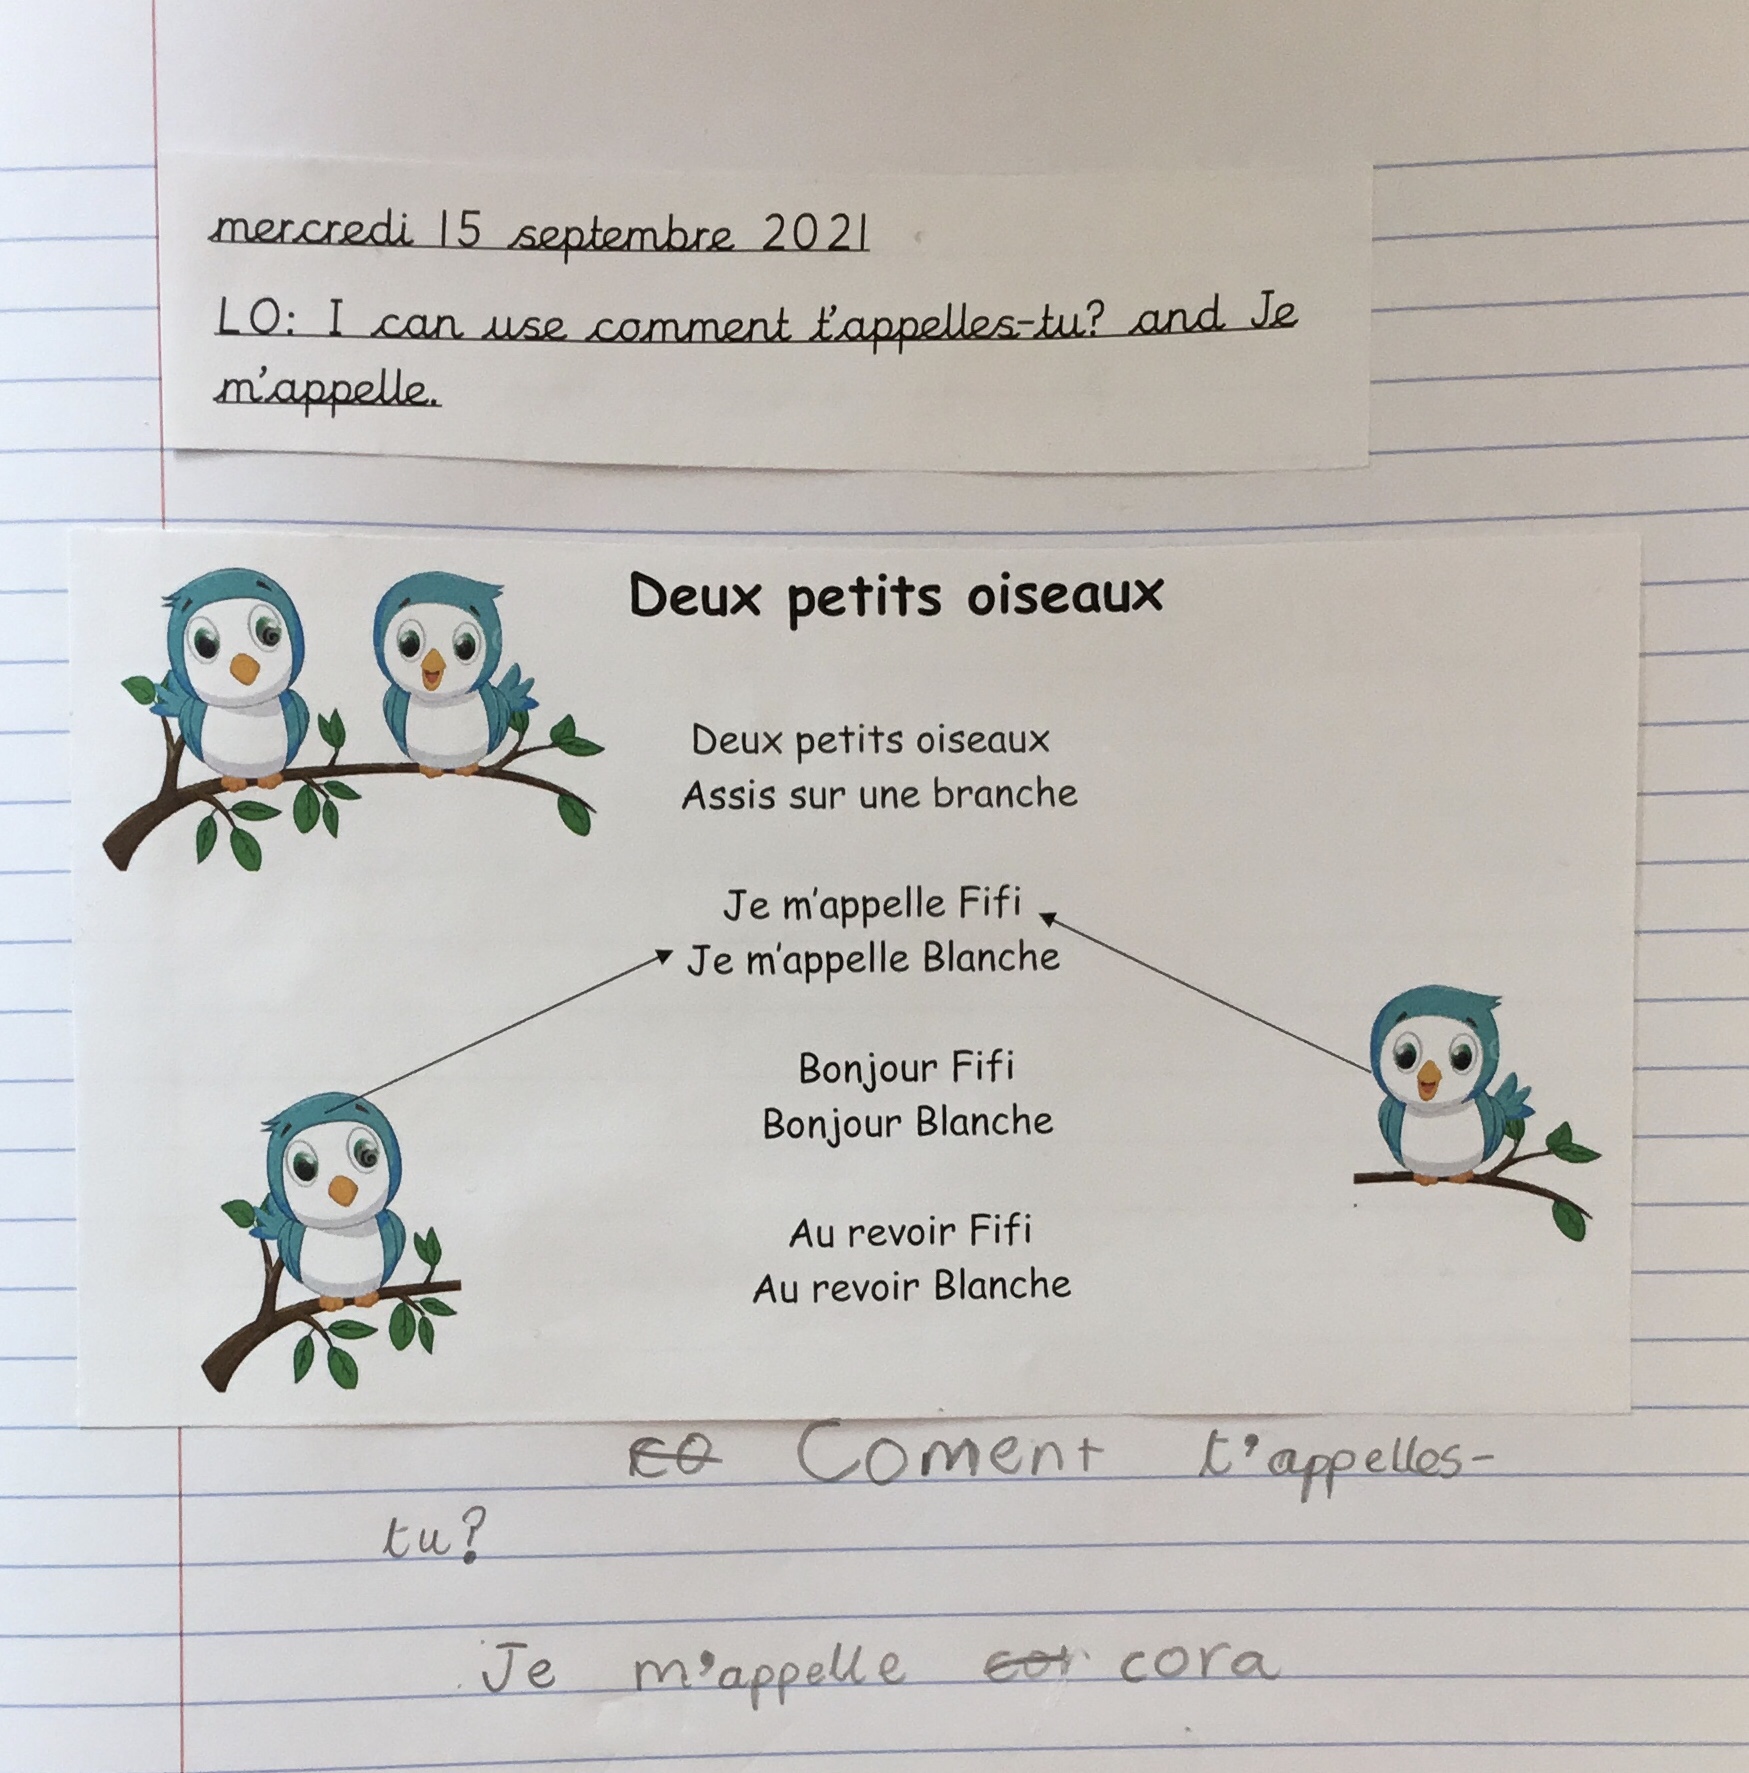 mercredi 15 septembre 2021
LO: I can use comment t'appelles-tu? and Je
m'appelle.
Deux petits oiseaux
Deux petits oiseaux
Assis sur une branche
Je m'appelle Fifi
Je m'appelle Blanche
Bonjour Fifi
Bonjour Blanche
Au revoir Fifi
Au revoir Blanche
Coment t'appelles-
tu?
Je m'appelle cora